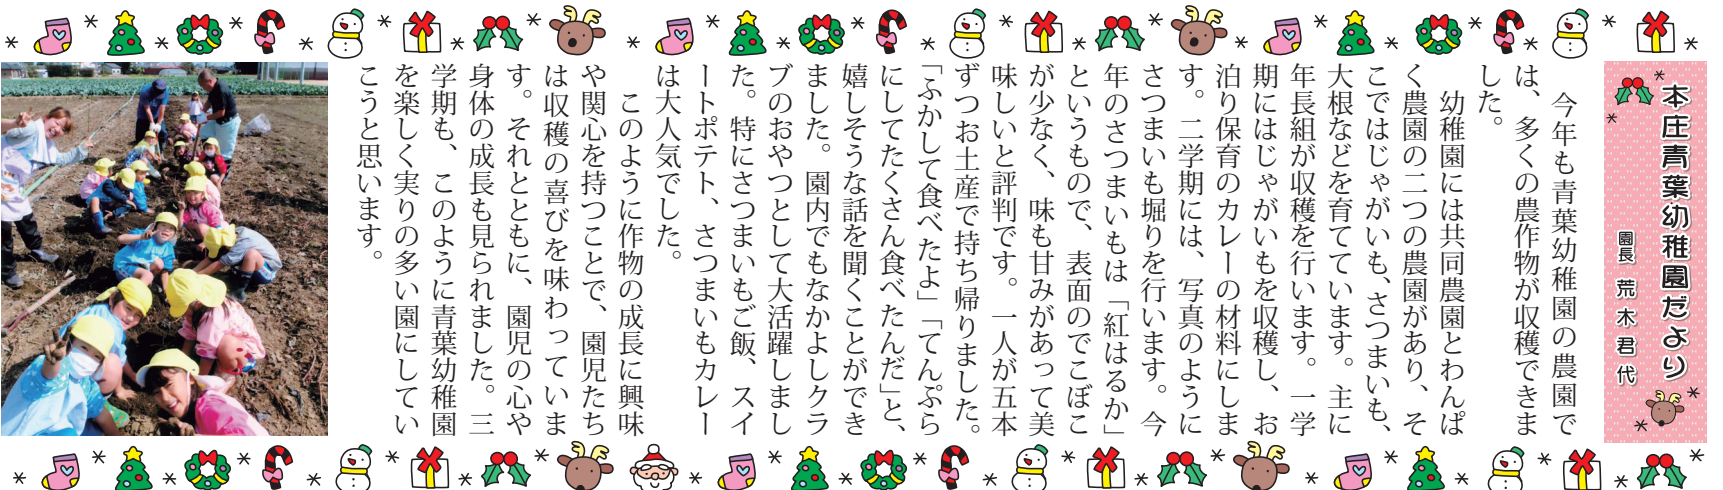 本庄青葉幼稚園だより
園長 荒木君代
　今年も青葉幼稚園の農園で
は、多くの農作物が収穫できま
した。
　幼稚園には共同農園とわんぱ
く農園の二つの農園があり、そ
こではじゃがいも、さつまいも、
大根などを育てています。主に
年長組が収穫を行います。一学
期にはじゃがいもを収穫し、お
泊り保育のカレーの材料にしま
す。二学期には、写真のように
さつまいも堀りを行います。今
年のさつまいもは「紅はるか」
というもので、表面のでこぼこ
が少なく、味も甘みがあって美
味しいと評判です。一人が五本
ずつお土産で持ち帰りました。
「ふかして食べたよ」「てんぷら
にしてたくさん食べたんだ」と、
嬉しそうな話を聞くことができ
ました。園内でもなかよしクラ
ブのおやつとして大活躍しまし
た。特にさつまいもご飯、スイ
ートポテト、さつまいもカレー
は大人気でした。
　このように作物の成長に興味
や関心を持つことで、園児たち
は収穫の喜びを味わっていま
す。それとともに、園児の心や
身体の成長も見られました。三
学期も、このように青葉幼稚園
を楽しく実りの多い園にしてい
こうと思います。